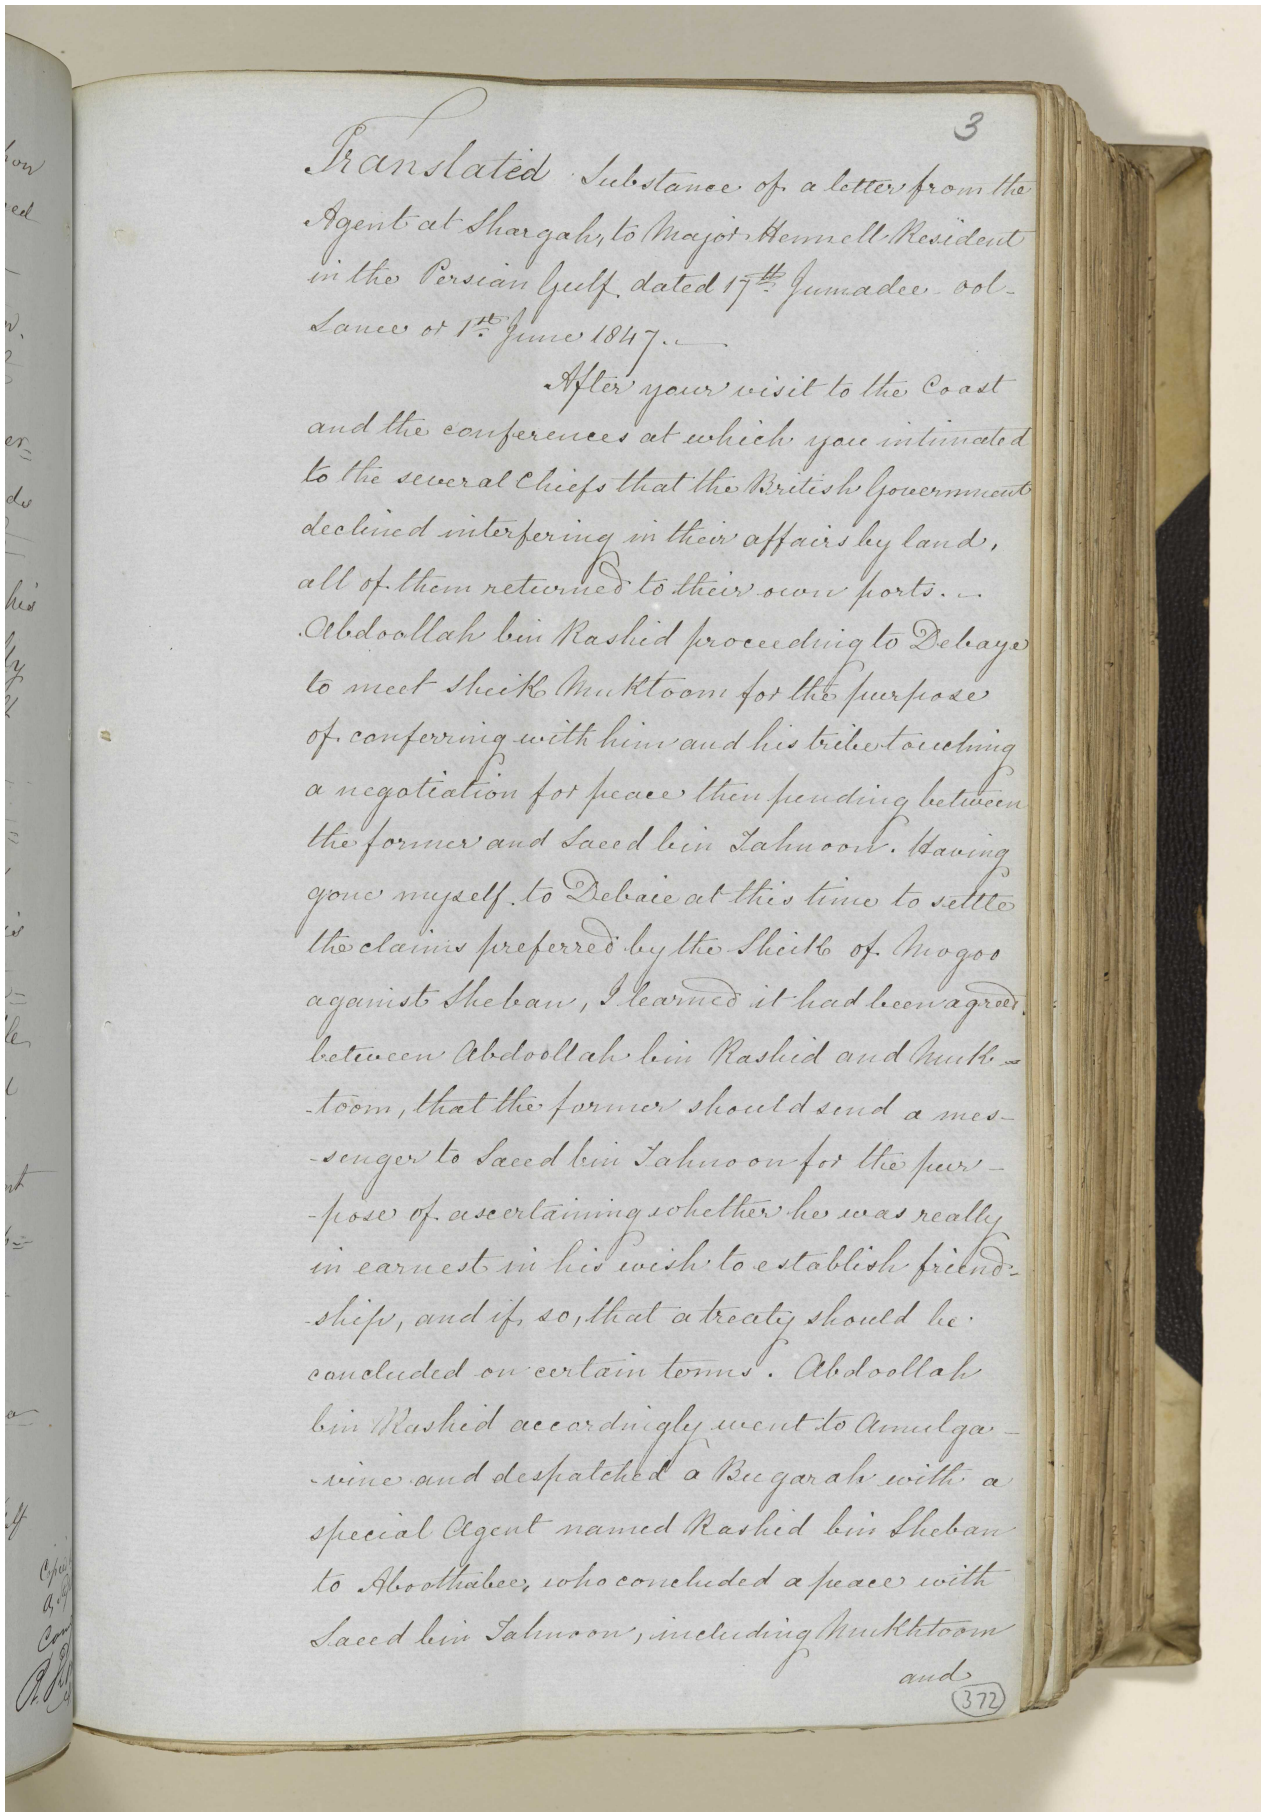 3
Translated Substance of a letter from the
Agent at Shargah, to Major Hennell Resident
in the Persian Gulf dated 17th Jumadee-ool-
Sanee or 1st June 1847.—
After your visit to the Coast
and the conferences at which you intimated
to the several Chiefs that the British Government
declined interfering in their affairs by land,
all of them returned to their own ports.—
Abdoollah bin Rashid proceeding to Debaye
to meet Sheik Muktoom for the purpose
of conferring with him and his tribe touching
a negotiation for peace then pending between
the former and Saeed bin Tahnoon. Having
gone myself to Debaie at this time to settle
the claims preferred by the Sheik of Mogoo
against Sheban, I learned it had been agreed
between Abdoollah bin Rashid and Muk=
-toom, that the former should send a mes-
-senger to Saeed bin Tahnoon for the pur-
-pose of ascertaining whether he was really
in earnest in his wish to establish friend-
-ship, and if so, that a treaty should be
concluded on certain terms. Abdoollah
bin Rashid accordingly went to Amulga-
-vine and despatched a Bugarah with a
special Agent named Rashid bin Sheban
to Aboothabee, who concluded a peace with
Saeed bin Tahnoon, including Mukhtoom
and
372